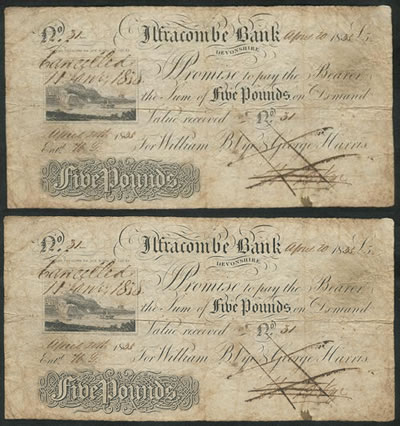 No. 31 Ilfracombe Bank April 20 1838 £5
DEVONSHIRE
Cancelled I Promise to pay the Bearer
1838
the Sum of Five Pounds on Demand
Value received £5 No. 31
April 20th 1838 For William B
George Harris
Entd
Five Pounds
No. 31 Ilfracombe Bank April 20 1838 £5
DEVONSHIRE
Cancelled I Promise to pay the Bearer
1838
the Sum of Five Pounds on Demand
Value received £5 No. 31
April 20th 1838 For William B
George Harris
Entd
Five Pounds